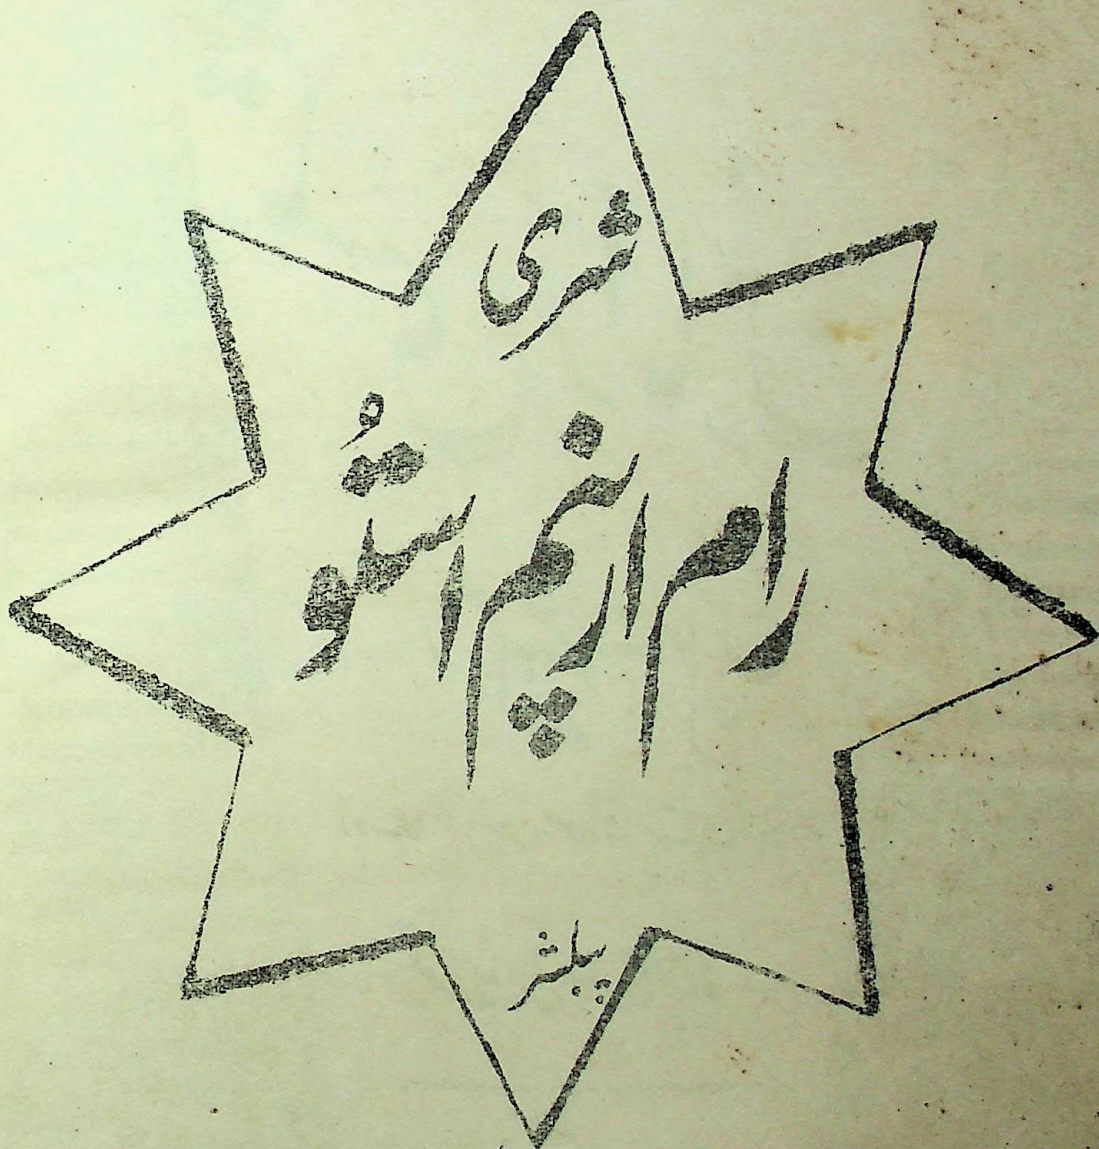 شری
رام ارپنم استُو
پبلشر